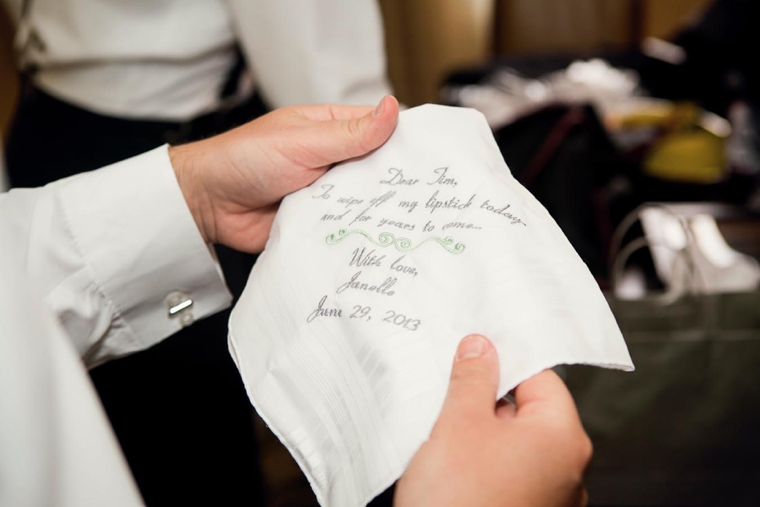 Dear Tim,
To wipe off my lipstick today
and for years to come...
With love,
Janelle
June 29, 2013